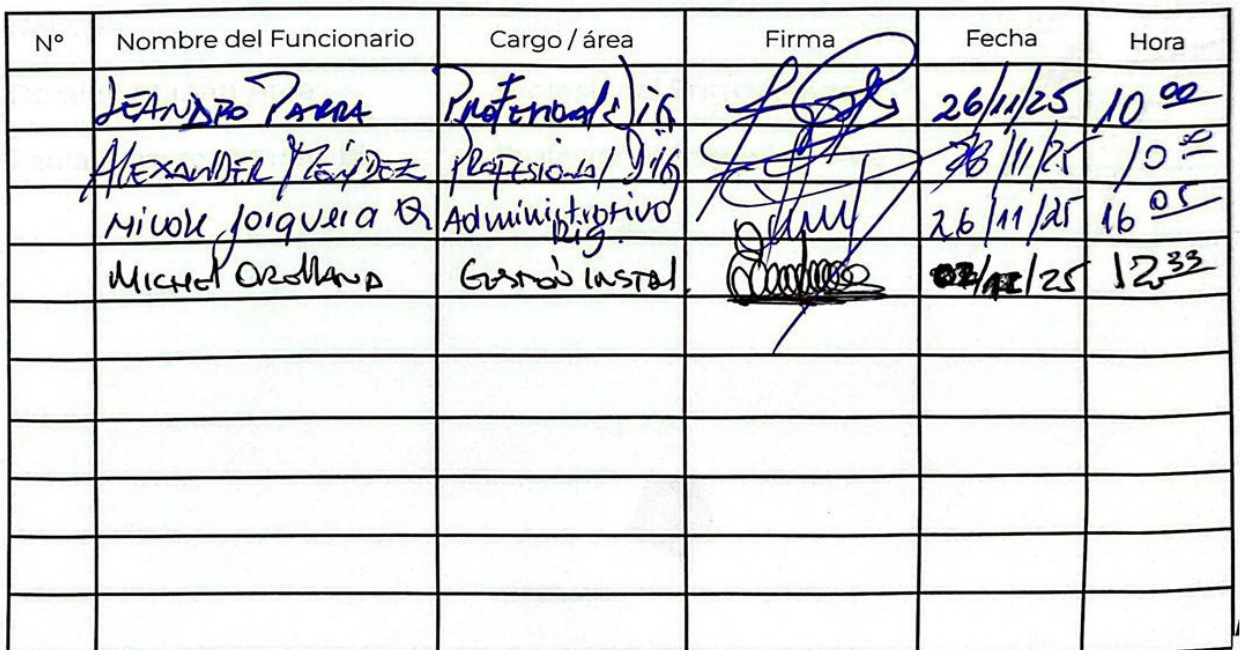 N° Nombre del Funcionario Cargo / área Firma Fecha Hora
LEANDRO PARRA Profesional Dig 26/11/25 10 00
ALEXANDER MÉNDEZ PROFESIONAL Dig 26/11/25 10
Nicole Jorquera Administrativo Dig. 26/11/25 16 05
MICHEL ORELLANA GESTIÓN INSTAL. /25 12 33